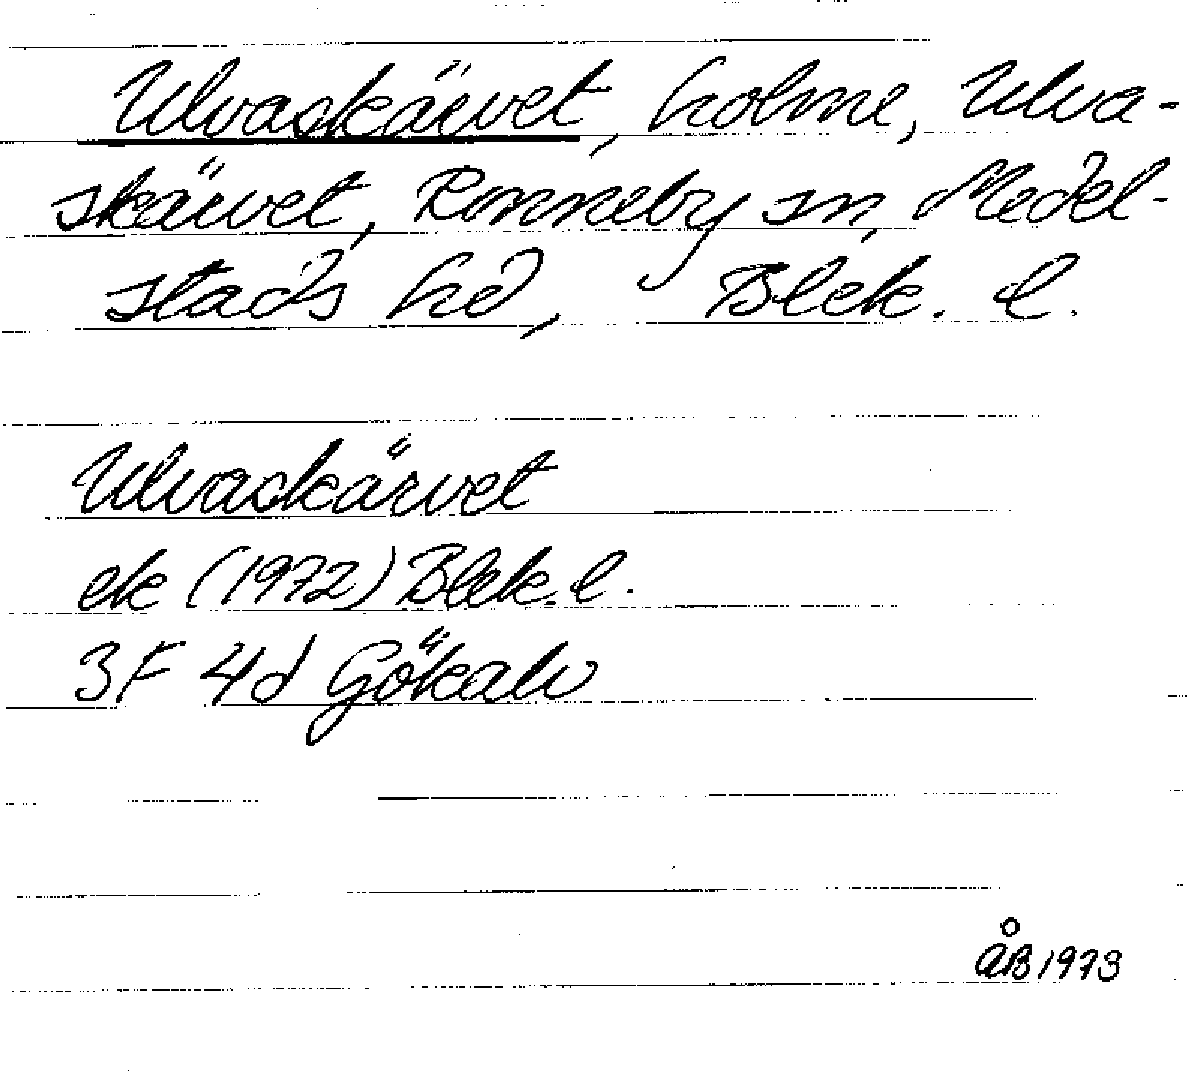 Ulvaskärvet, holme, Ulva-
skärvet, Ronneby sn, Medel-
stads hd, Blek. l.
Ulvaskärvet
ek (1972) Blek. l.
3F 4d Gökalv
ÅB 1973